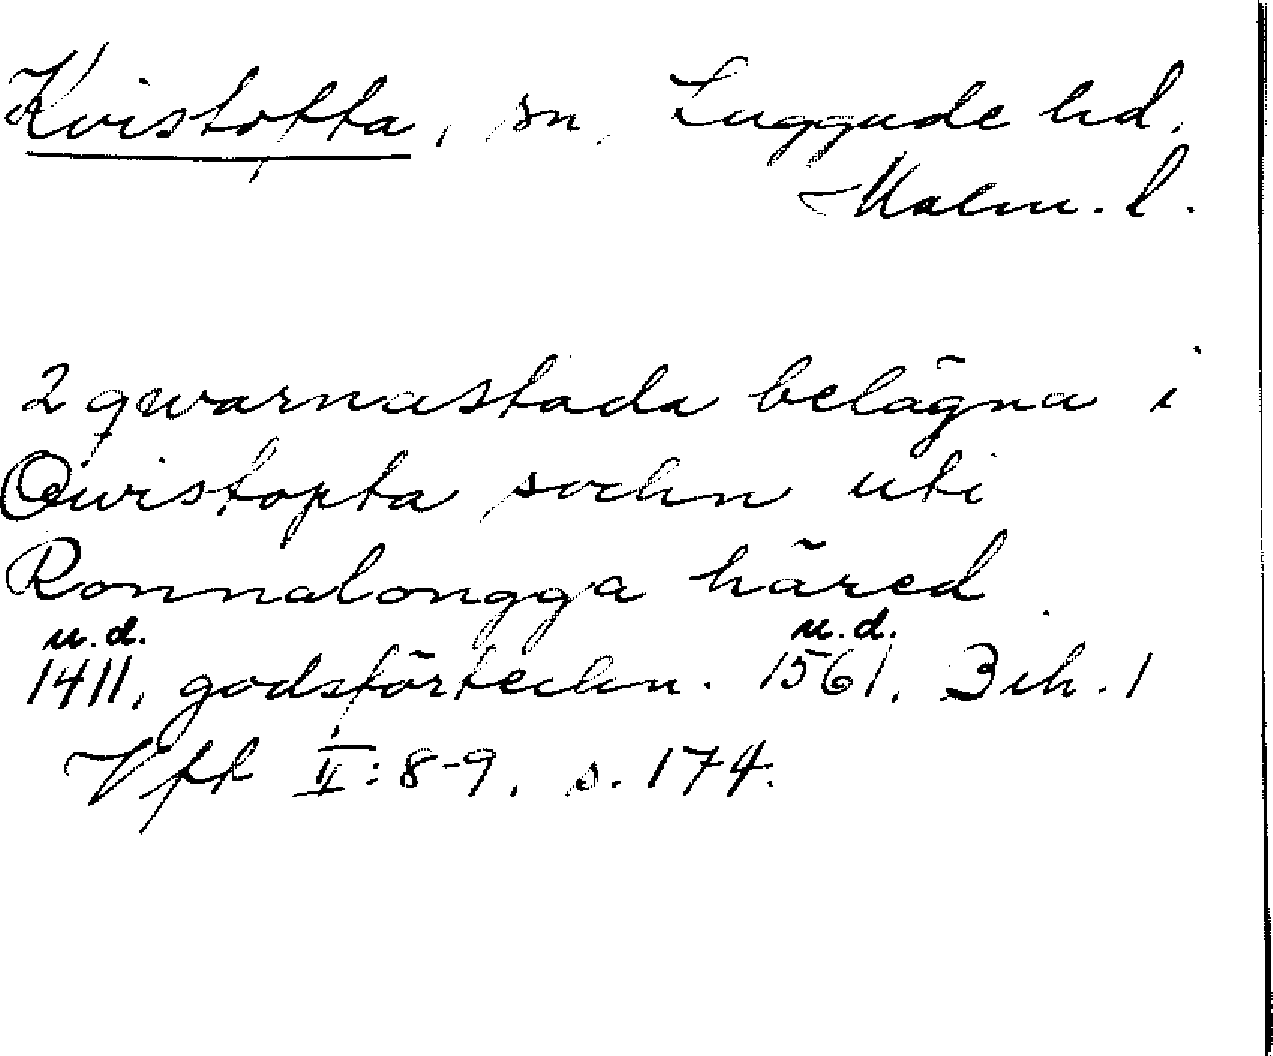 Kvistofta, sn, Luggude hd.
Malm. l.
2 qwarnastada belägna i
Qwistopta sochn uti
Ronnalongga häred
u.d. u.d.
1411, godsförteckn. 1561. Bih. 1
Vfk II: 8-9, s. 174.